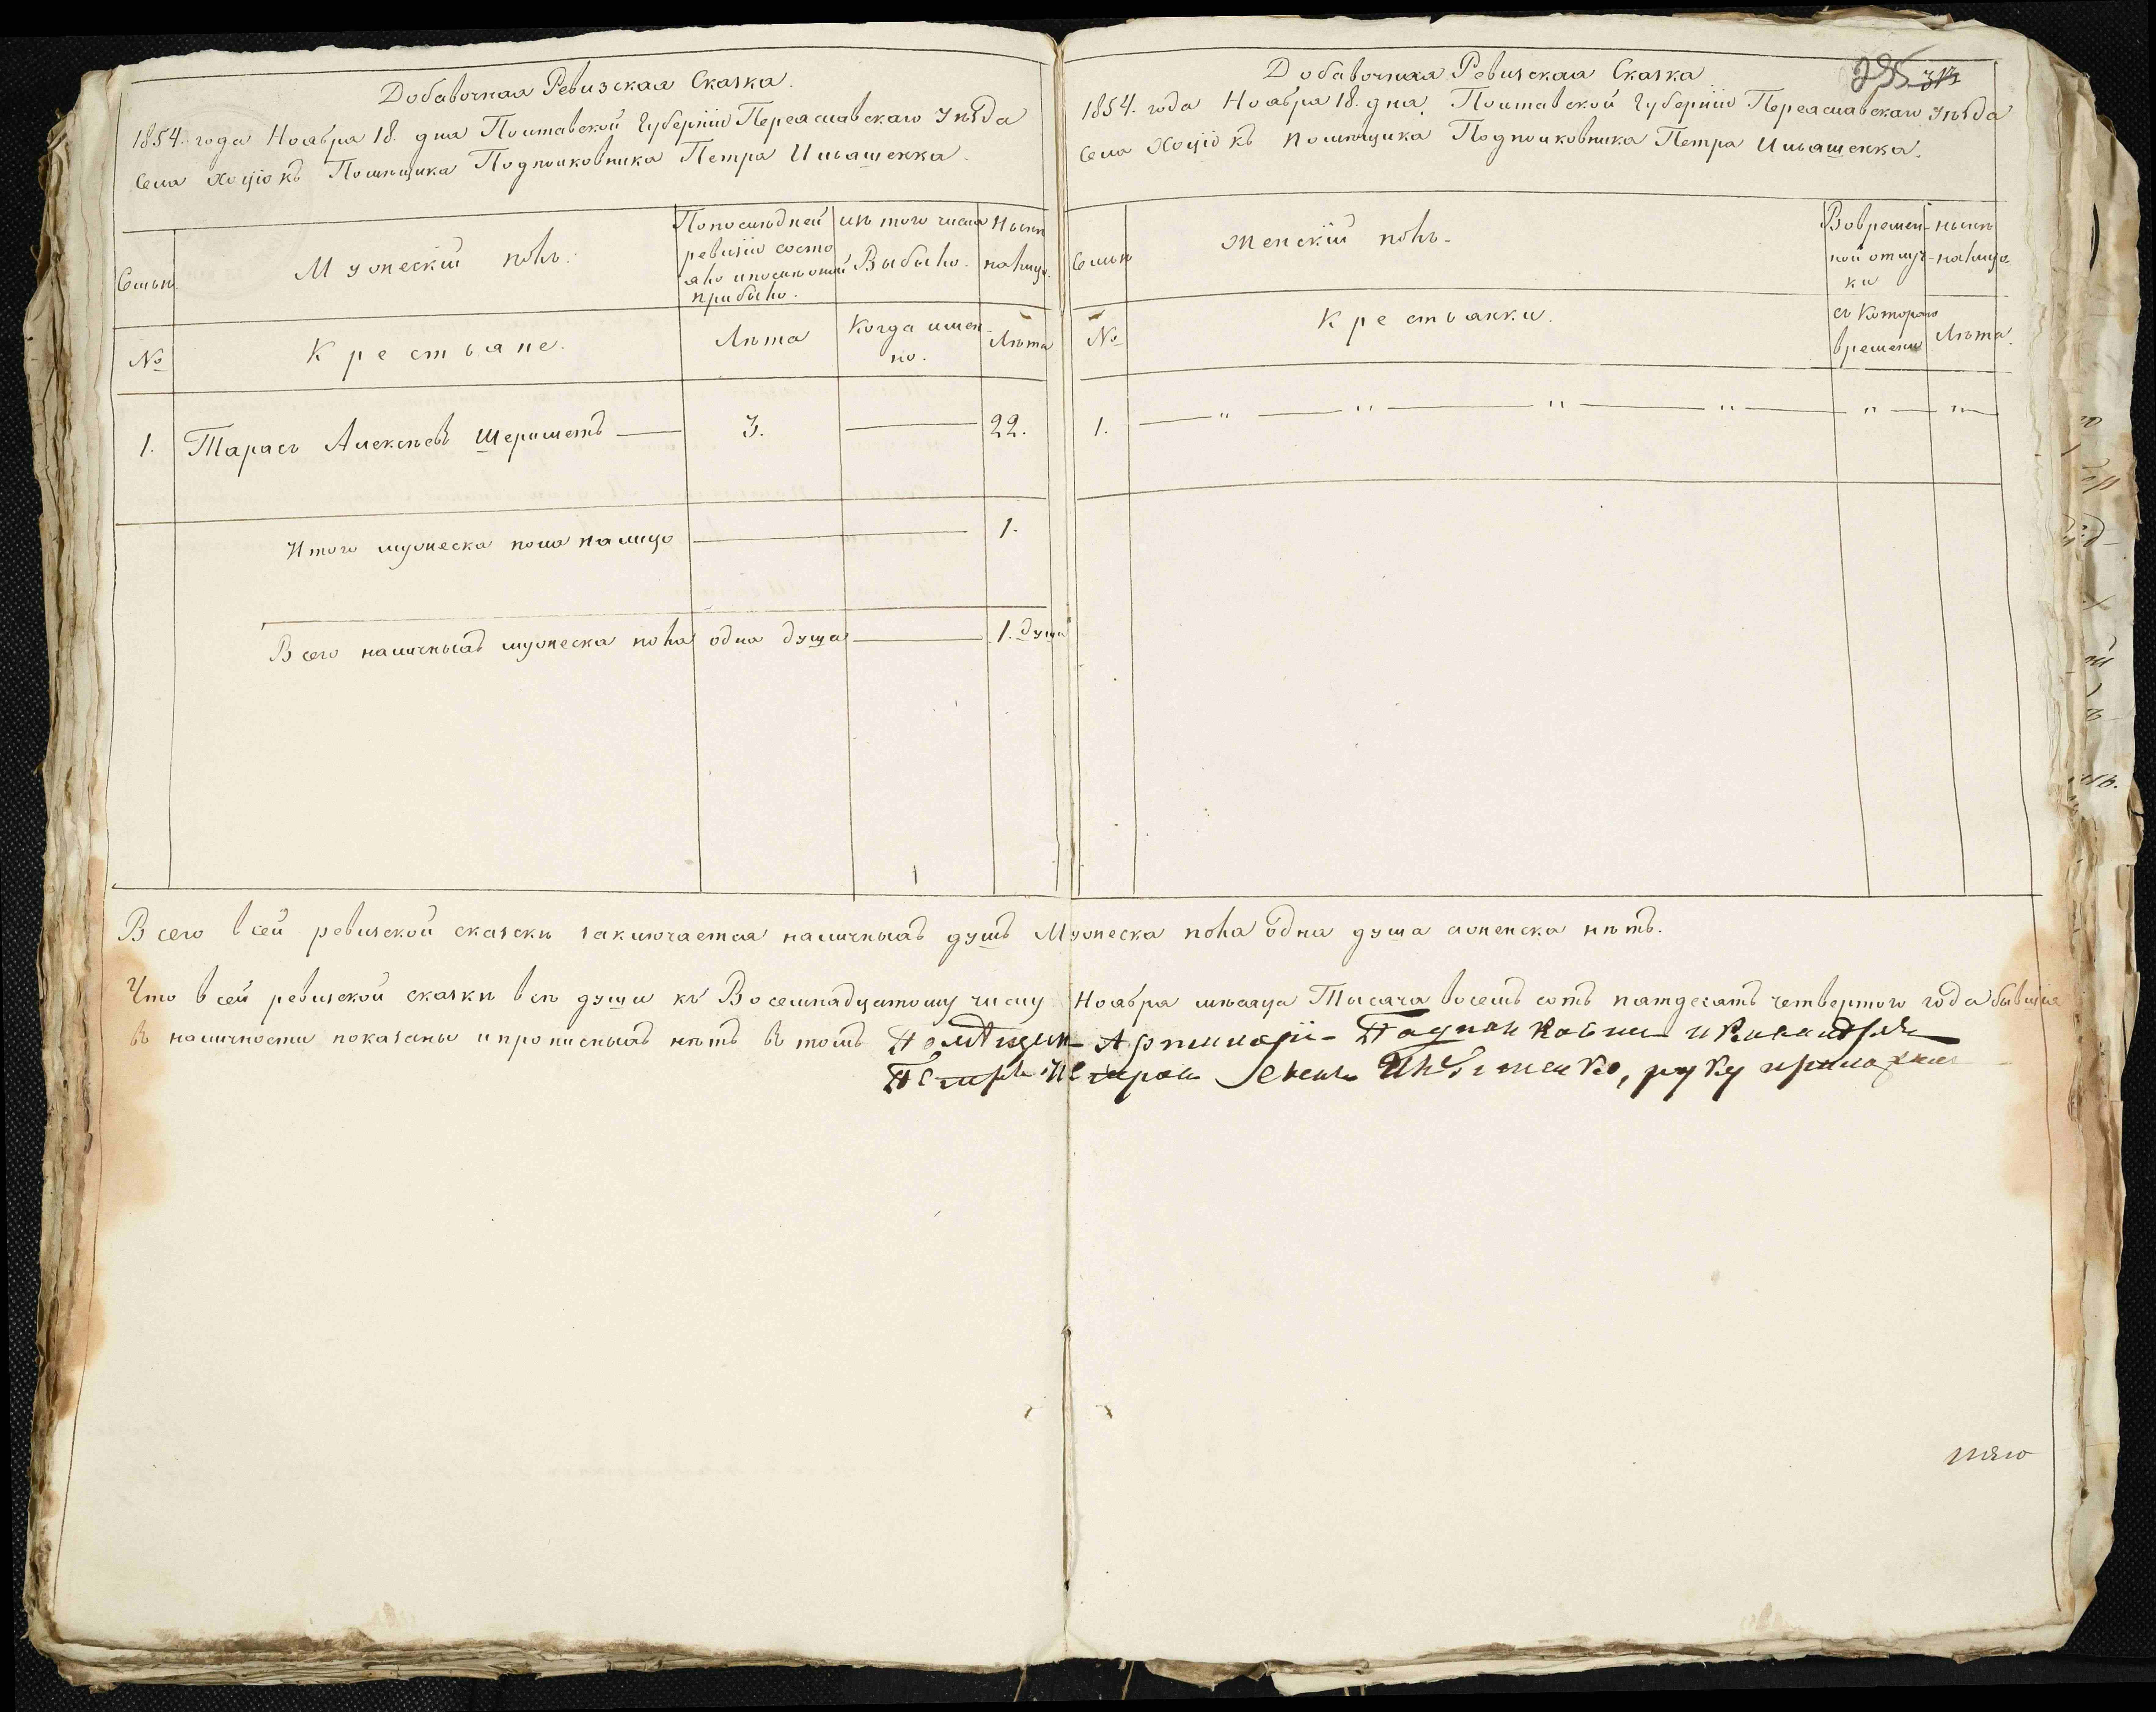 Добавочная Ревизская Сказка.
1854. года Ноября 18. дня Полтавской Губерніи Переяславскаго Уѣзда
Села Хоцюкъ Помѣщика Подполковника Петра Ильяшенка.
Семьи
Мужескій полъ.
По последней
ревизіи состо
яло и после оной
прибыло.
изъ того числа
Выбыло.
Нынѣ
на лицо.
№
Крестьяне.
Лѣта
Когда имен
но.
Лѣта
1.
Тарасъ Алексѣевъ Шереметъ
3.
22.
Итого мужеска пола на лицо
1.
Всего наличныхъ мужеска пола одна душа
1. душа
Добавочная Ревизская Сказка
235
1854. года Ноября 18. дня Полтавской Губерніи Переяславскаго Уѣзда
Села Хоцюкъ Помѣщика Подполковника Петра Ильяшенка.
Семьи
Женскій полъ.
Во времен-
ной отлуч-
ки
нынѣ
на лицо
№
Крестьянки.
съ котораго
времени
Лѣта.
1.
Всего в сей ревизской сказки заключается наличныхъ душъ Мужеска пола одна душа а женска нѣтъ.
Что в сей ревизской сказки всѣ души къ Восемнадцатому числу Ноября мѣсяца Тысяча восемь сотъ пятдесятъ четвертого года бывшіе
въ наличности показаны и прописныхъ нѣтъ въ томъ Помѣщик Артилеріи Подполковник и Кавалеръ
Петръ Петровъ сынъ Ильяшенко, руку приложил